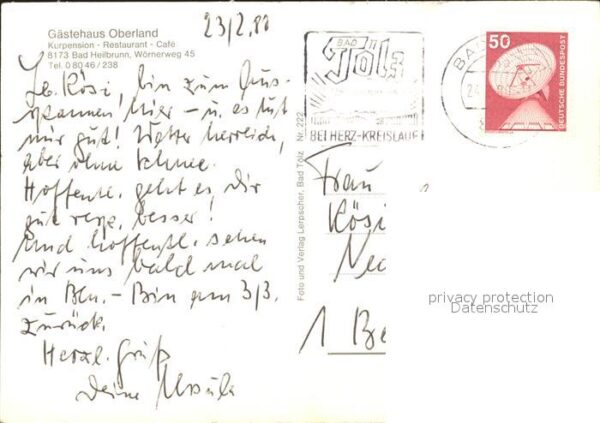 Gästehaus Oberland
Kurpension - Restaurant - Café
8173 Bad Heilbrunn, Wörnerweg 45
Tel. 0 80 46 / 238
23/2.80
Lb. Kösi, bin zum Aus-
spannen hier – u. es tut
mir gut! Wetter herrlich,
aber ohne Schnee.
Hoffentl. geht es Dir
gut resp. besser!
Und hoffentl. sehen
wir uns bald mal
in Bln. – Bin am 3/3.
zurück.
Herzl. Gruß
Deine Ursula
Foto und Verlag Lerpscher, Bad Tölz Nr. 222
BAD
Tölz
BEI HERZ-KREISLAUF
BA
50
DEUTSCHE BUNDESPOST
Frau
Kösi
1 Be
privacy protection
Datenschutz